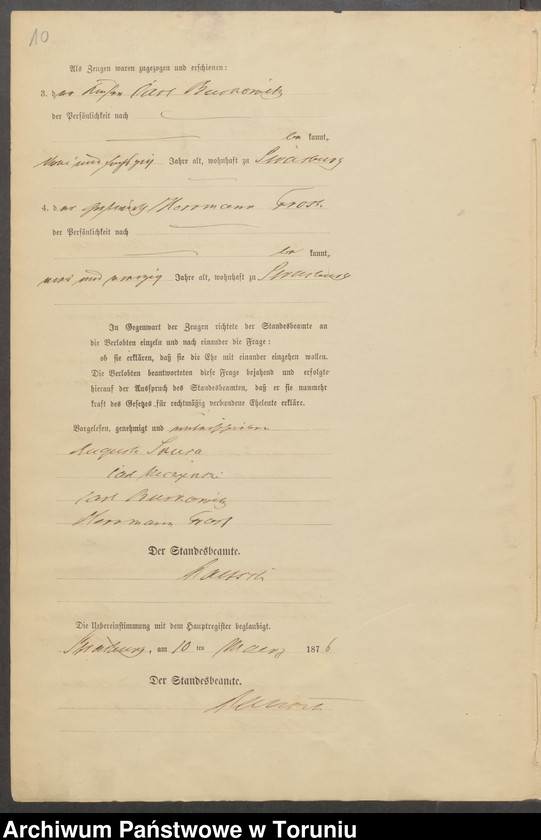 10
Als Zeugen waren zugezogen und erschienen:
3. der Carl Burkowitz
der Persönlichkeit nach
be kannt,
und Jahre alt, wohnhaft zu Strasburg
4. der Herrmann Frost
der Persönlichkeit nach
be kannt,
und Jahre alt, wohnhaft zu Strasburg
In Gegenwart der Zeugen richtete der Standesbeamte an
die Verlobten einzeln und nach einander die Frage:
ob sie erklären, daß sie die Ehe mit einander eingehen wollen.
Die Verlobten beantworteten diese Frage bejahend und erfolgte
hierauf der Ausspruch des Standesbeamten, daß er sie nunmehr
kraft des Gesetzes für rechtmäßig verbundene Eheleute erkläre.
Vorgelesen, genehmigt und unterschrieben
Auguste
Carl
Carl Burkowitz
Herrmann Frost
Der Standesbeamte.
Die Uebereinstimmung mit dem Hauptregister beglaubigt.
Strasburg, am 10 ten Maerz 1876
Der Standesbeamte.
Archiwum Państwowe w Toruniu